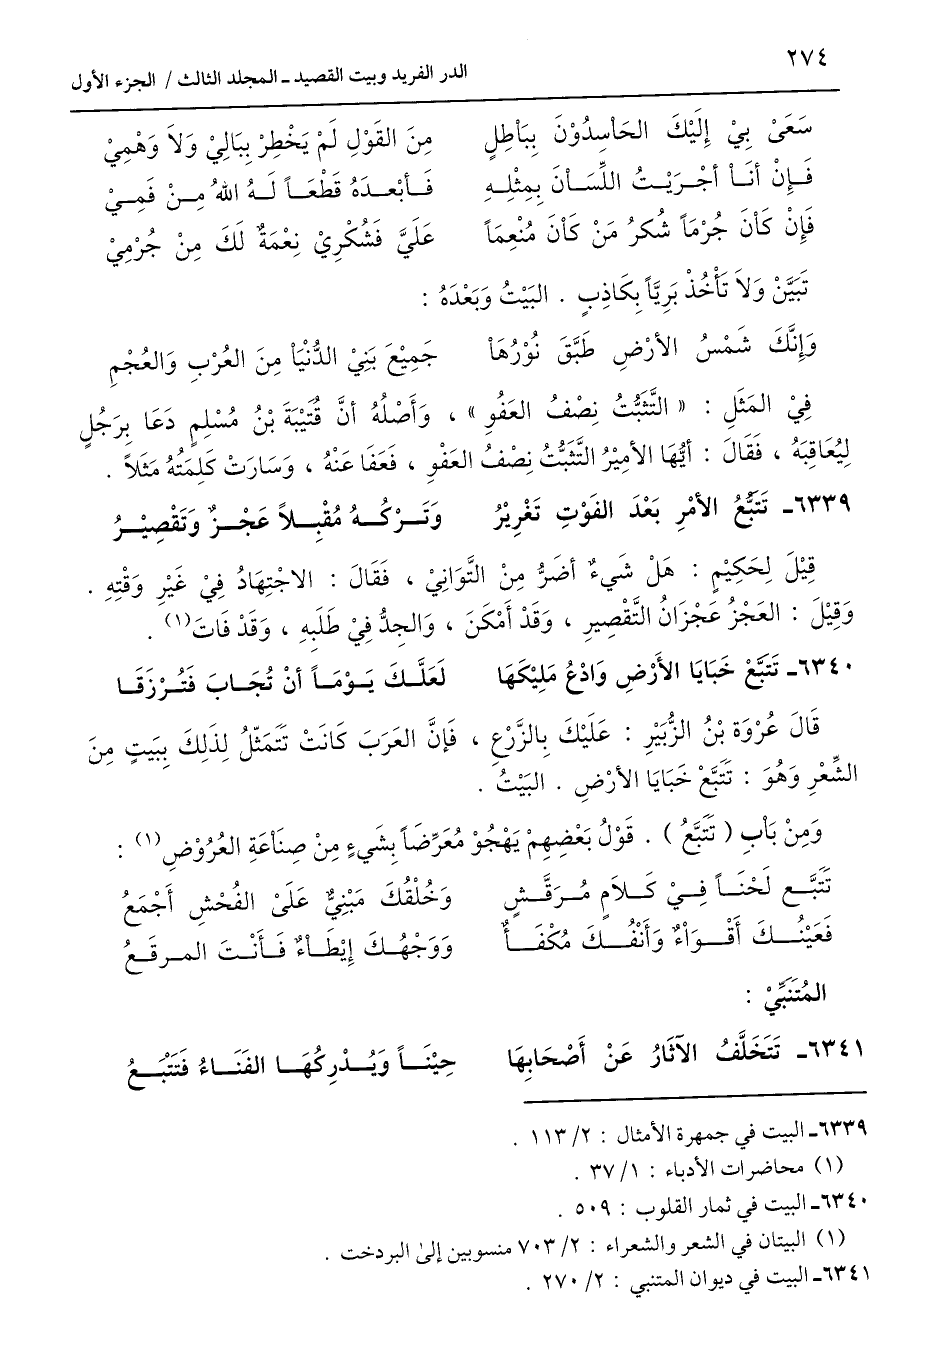 ٢٧٤
الدر الفريد وبيت القصيد ـ المجلد الثالث / الجزء الأول
سَعَىْ بِيْ إِلَيْكَ الحَاسِدُوْنَ بِبَاْطِلٍ مِنَ القَوْلِ لَمْ يَخْطِرْ بِبَالِيْ وَلاَ وَهْمِيْ
فَإِنْ أنَاْ أجْرَيْتُ اللِّسَاْنَ بِمِثْلِهِ فَأبْعَدَهُ قَطْعَاً لَهُ اللهُ مِنْ فَمِيْ
فَإِنْ كَاْنَ جُرْمَاً شُكرُ مَنْ كَاْنَ مُنْعِمَاً عَلَيَّ فَشُكْرِيْ نِعْمَةٌ لَكَ مِنْ جُرْمِيْ
تَبَيَّنْ وَلاَ تَأْخُذْ بَرِيَّاً بِكَاذِبٍ . البَيْتُ وَبَعْدَهُ :
وَإِنَّكَ شَمْسُ الأرْضِ طَبَّقَ نُوْرُهَاْ جَمِيْعَ بَنِيْ الدُّنْيَاْ مِنَ العُرْبِ وَالعُجْمِ
فِيْ المَثَلِ : « التَّثَبُّتُ نِصْفُ العَفُو » ، وَأَصْلُهُ أنَّ قُتَيْبَةَ بْنُ مُسْلِمٍ دَعَا بِرَجُلٍ
لِيُعَاقِبَهُ ، فَقَالَ : أيُّهَا الأمِيْرُ التَّثَبُّتُ نِصْفُ العَفْوِ ، فَعَفَا عَنْهُ ، وَسَارَتْ كَلِمَتُهُ مَثَلاً .
٦٣٣٩ـ تَتَبُّعُ الأمْرِ بَعْدَ الفَوْتِ تَغْرِيْرُ وَتَرْكُهُ مُقْبِلاً عَجْزٌ وَتَقْصِيْرُ
قِيْلَ لِحَكِيْمٍ : هَلْ شَيءٌ أضَرُّ مِنْ التَّوَانِيْ ، فَقَالَ : الاجْتِهَادُ فِيْ غَيْرِ وَقْتِهِ .
وَقِيْلَ : العَجْزُ عَجْزَانُ التَّقْصِيرِ ، وَقَدْ أمْكَنَ ، وَالجِدُّ فِيْ طَلَبِهِ ، وَقَدْ فَاتَ(١) .
٦٣٤٠ـ تَتَبَّعْ خَبَايَا الأَرْضِ وَادْعُ مَلِيْكَهَا لَعَلَّكَ يَوْمَاً أنْ تُجَابَ فَتُرْزَقَا
قَالَ عُرْوَة بْنُ الزُّبَيْرِ : عَلَيْكَ بِالزَّرْعِ ، فَإِنَّ العَرَبَ كَانَتْ تَتَمَثّلُ لِذَلِكَ بِبَيتٍ مِنَ
الشِّعْرِ وَهُوَ : تَتَبَّعْ خَبَايَا الأرْضِ . البَيْتُ .
وَمِنْ بَاْبِ ( تَتَبَّعُ ) . قَوْلُ بَعْضِهِمْ يَهْجُوْ مُعَرِّضَاً بِشَيءٍ مِنْ صِنَاعَةِ العُرُوْضِ(١) :
تَتَبَّع لَحْنَاً فِيْ كَلاَمٍ مُرَقَّشٍ وَخُلْقُكَ مَبْنِيٌّ عَلَىْ الفُحْشِ أَجْمَعُ
فَعَيْنُكَ أقْوَاْءٌ وَأنْفُكَ مُكْفَأٌ وَوَجْهُكَ إيْطَاْءٌ فَأنْتَ المرقعُ
المُتَنَبِّيْ :
٦٣٤١ـ تَتَخَلَّفُ الآثَارُ عَنْ أَصْحَابِهَا حِيْنَاً وَيُدْرِكُهَا الفَنَاءُ فَتَتْبَعُ
٦٣٣٩ـ البيت في جمهرة الأمثال : ٢/ ١١٣ .
(١) محاضرات الأدباء : ١/ ٣٧ .
٦٣٤٠ـ البيت في ثمار القلوب : ٥٠٩ .
(١) البيتان في الشعر والشعراء : ٢/ ٧٠٣ منسوبين إلىٰ البردخت .
٦٣٤١ـ البيت في ديوان المتنبي : ٢/ ٢٧٠ .